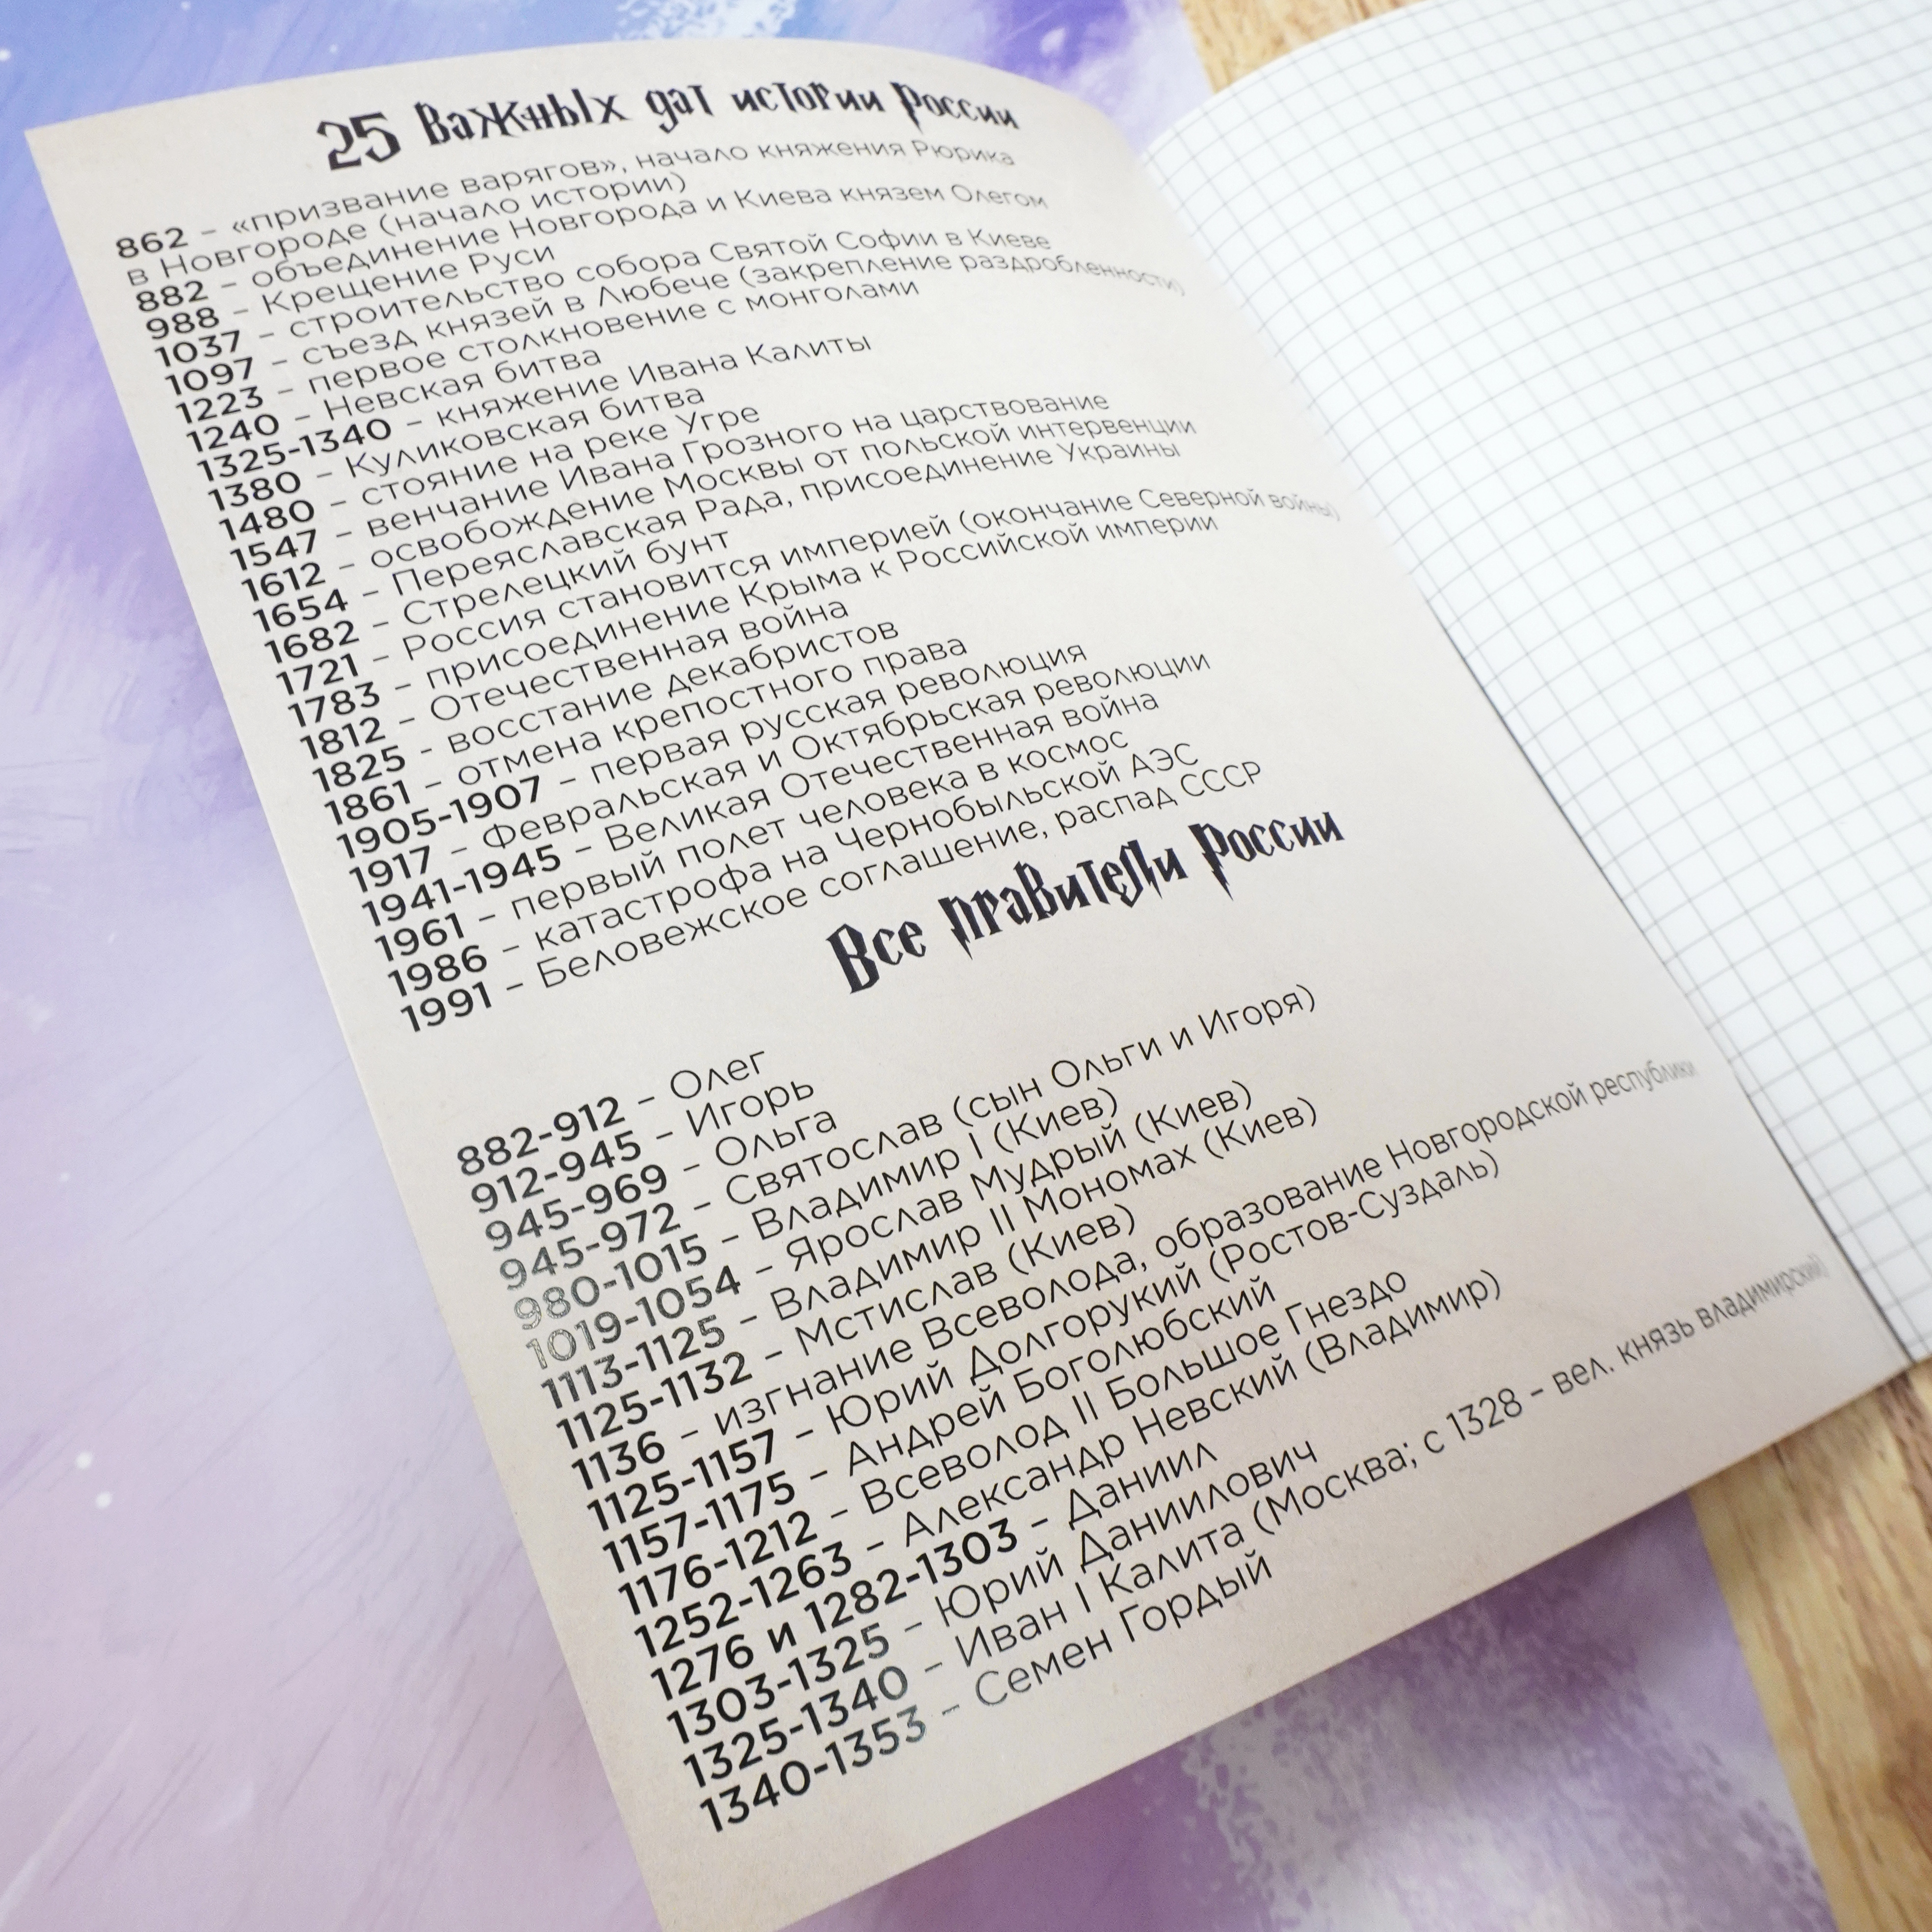 25 Важных дат истории России
862 – «призвание варягов», начало княжения Рюрика
в Новгороде (начало истории)
882 – объединение Новгорода и Киева князем Олегом
988 – Крещение Руси
1037 – строительство собора Святой Софии в Киеве
1097 – съезд князей в Любече (закрепление раздробленности)
1223 – первое столкновение с монголами
1240 – Невская битва
1325-1340 – княжение Ивана Калиты
1380 – Куликовская битва
1480 – стояние на реке Угре
1547 – венчание Ивана Грозного на царствование
1612 – освобождение Москвы от польской интервенции
1654 – Переяславская Рада, присоединение Украины
1682 – Стрелецкий бунт
1721 – Россия становится империей (окончание Северной войны)
1783 – присоединение Крыма к Российской империи
1812 – Отечественная война
1825 - восстание декабристов
1861 – отмена крепостного права
1905-1907 – первая русская революция
1917 – Февральская и Октябрьская революции
1941-1945 – Великая Отечественная война
1961 – первый полет человека в космос
1986 – катастрофа на Чернобыльской АЭС
1991 – Беловежское соглашение, распад СССР
Все правители России
882-912 – Олег
912-945 – Игорь
945-969 – Ольга
945-972 – Святослав (сын Ольги и Игоря)
980-1015 – Владимир I (Киев)
1019-1054 – Ярослав Мудрый (Киев)
1113-1125 – Владимир II Мономах (Киев)
1125-1132 – Мстислав (Киев)
1136 – изгнание Всеволода, образование Новгородской республики
1125-1157 – Юрий Долгорукий (Ростов-Суздаль)
1157-1175 – Андрей Боголюбский
1176-1212 – Всеволод II Большое Гнездо
1252-1263 – Александр Невский (Владимир)
1276 и 1282-1303 – Даниил
1303-1325 – Юрий Даниилович
1325-1340 – Иван I Калита (Москва; с 1328 – вел. князь владимирский)
1340-1353 – Семен Гордый